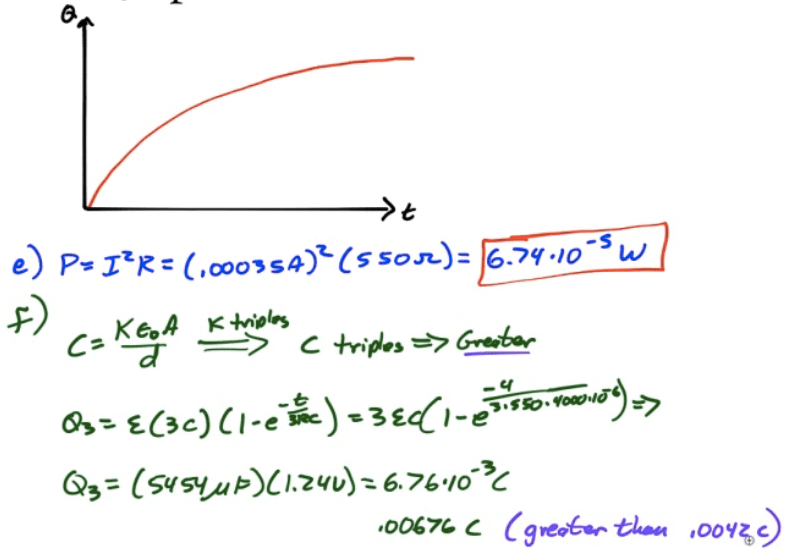 Q
t
e) P= I²R = (.00035A)² (550Ω) = 6.74·10⁻⁵ W
f)
C = Kε₀A/d ⟹ K triples C triples => Greater
Q₃ = ε(3C)(1-e^(-t/3RC)) = 3εC(1-e^(-4/(3·550·4000·10⁻⁶)) =>
Q₃ = (5454μF)(1.24V) = 6.76·10⁻³C
.00676 C (greater than .0042C)